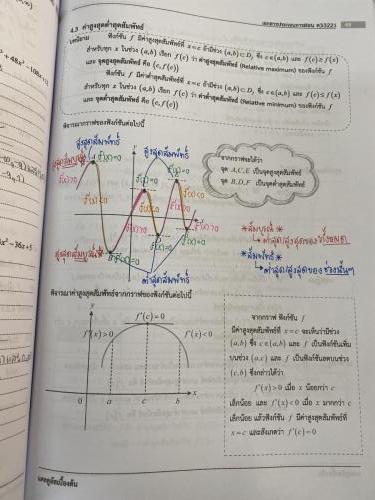 เอกสารประกอบการเรียน ค33221
4.3 ค่าสูงสุดต่ำสุดสัมพัทธ์
บทนิยาม ฟังก์ชัน f มีค่าสูงสุดสัมพัทธ์ที่ x=c ถ้ามีช่วง (a,b)⊂D_f ซึ่ง c∈(a,b) และ f(c)≥f(x)
สำหรับทุก x ในช่วง (a,b) เรียก f(c) ว่า ค่าสูงสุดสัมพัทธ์ (Relative maximum) ของฟังก์ชัน f
และ จุดสูงสุดสัมพัทธ์ คือ (c,f(c))
ฟังก์ชัน f มีค่าต่ำสุดสัมพัทธ์ที่ x=c ถ้ามีช่วง (a,b)⊂D_f ซึ่ง c∈(a,b) และ f(c)≤f(x)
สำหรับทุก x ในช่วง (a,b) เรียก f(c) ว่า ค่าต่ำสุดสัมพัทธ์ (Relative minimum) ของฟังก์ชัน f
และ จุดต่ำสุดสัมพัทธ์ คือ (c,f(c))
พิจารณากราฟของฟังก์ชันต่อไปนี้
สูงสุดสัมพัทธ์
สูงสุดสัมพัทธ์
จากกราฟจะได้ว่า
จุด A,C,E เป็นจุดสูงสุดสัมพัทธ์
จุด B,D,F เป็นจุดต่ำสุดสัมพัทธ์
*สัมบูรณ์*
ต่ำสุด/สูงสุดของทั้งหมด
*สัมพัทธ์*
ต่ำสุด/สูงสุดของช่วงนั้นๆ
ต่ำสุดสัมพัทธ์
พิจารณาค่าสูงสุดสัมพัทธ์จากกราฟของฟังก์ชันต่อไปนี้
y
f'(c)=0
f'(x)>0
f'(x)<0
0 a c b x
จากกราฟ ฟังก์ชัน f
มีค่าสูงสุดสัมพัทธ์ที่ x=c จะเห็นว่ามีช่วง
(a,b) ซึ่ง c∈(a,b) และ f เป็นฟังก์ชันเพิ่ม
บนช่วง (a,c) และ f เป็นฟังก์ชันลดบนช่วง
(c,b) ซึ่งกล่าวได้ว่า
f'(x)>0 เมื่อ x น้อยกว่า c
เล็กน้อย และ f'(x)<0 เมื่อ x มากกว่า c
เล็กน้อย แล้วฟังก์ชัน f มีค่าสูงสุดสัมพัทธ์ที่
x=c และสังเกตว่า f'(c)=0
แคลคูลัสเบื้องต้น